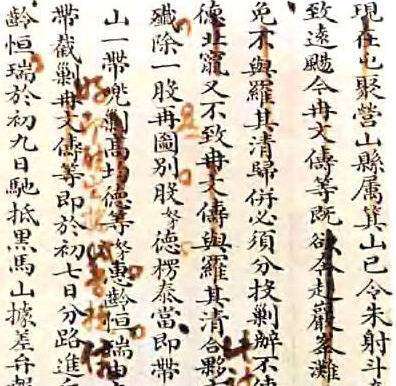 現在屯聚營山縣属箕山已令朱射斗
致遠颺今冉文儔等既欲走嚴峯灘
免不與羅其清歸併必須分投剿辦不使
德北竄又不致冉文儔與羅其清合夥
殲除一股再圖別股奴才德楞泰當即帶
山一帶兜剿高均德等奴才惠齡恒瑞由
帶截剿冉文儔等即於初七日分路進
齡恒瑞於初九日馳抵黑馬山據差弁